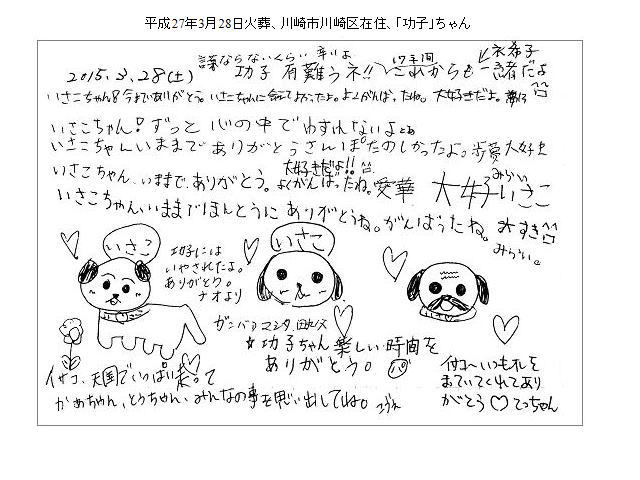 平成27年3月28日火葬、川崎市川崎区在住、「功子」ちゃん
2015.3.28(土)
功子 有難うネ!! これからも一緒だよ
17年間
いさこちゃん!今までありがとう。いさこちゃんに会えてよかったよ。よくがんばったね。大好きだよ。
いさこちゃん!ずっと 心の中で わすれないよ
いさこちゃんいままでありがとうさんぽたのしかったよ。 大好き
大好きだよ!!
いさこちゃん、いままで、ありがとう。よくがんばったね。愛華
みらい
大好きいさこ
いさこちゃんいままでほんとうにありがとうね。がんばったね。
大すき
みらい。
いさこ
いさこ
功子には
いやされたよ。
ありがとウ。
ナオより
☆功子ちゃん楽しい時間を
ありがとう。
イサコ、天国でいっぱい走って
かあちゃん、とうちゃん、みんなの事を思い出してね。
イサコ〜いつもオレを
まっていてくれてあり
がとう♡てっちゃん